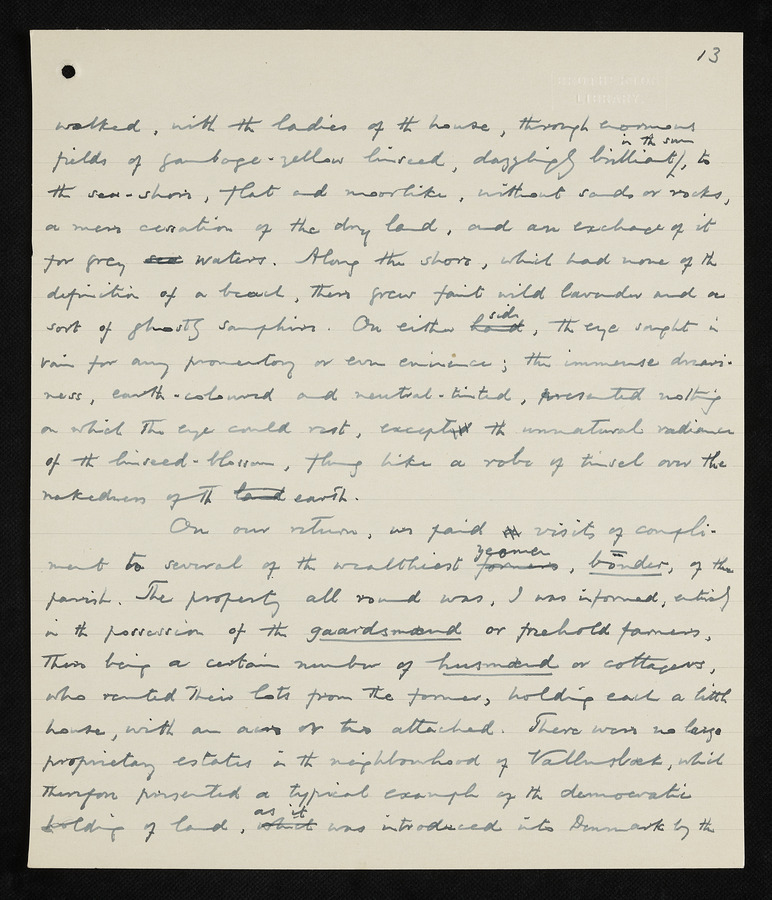 13
walked, with the ladies of the house, through enormous
in the sun
fields of gamboge-yellow linseed, dazzlingly brilliant, to
the sea-shore, flat and moorlike, without sands or rocks,
a mere cessation of the dry land, and an exchange of it
for grey sea waters. Along the shore, which had none of the
definition of a beach, there grew faint wild lavender and a
side
sort of ghostly samphire. On either hand, the eye sought in
vain for any promontory or even eminence; the immense dreari-
ness, earth-coloured and neutral-tinted, presented nothing
on which the eye could rest, except the unnatural radiance
of the linseed-blossom, flung like a robe of tinsel over the
nakedness of the land earth.
On our return, we paid visits of compli-
yeomen
ment to several of the wealthiest farmers, bönder, of the
parish. The property all round was, I was informed, entirely
in the possession of the gaardsmænd or freehold farmers,
there being a certain number of husmænd or cottagers,
who rented their lots from the former, holding each a little
house, with an acre or two attached. There were no large
proprietary estates in the neighbourhood of Vallensbæk, which
therefore presented a typical example of the democratic
as it
holding of land, which was introduced into Denmark by the